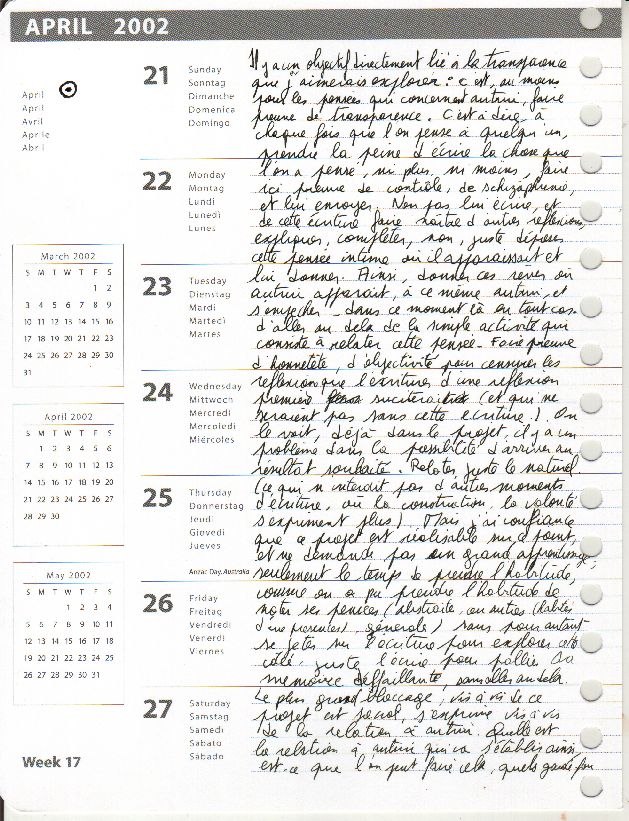 APRIL 2002
April
April
Avril
Aprile
Abril
March 2002
S M T W T F S
1 2
3 4 5 6 7 8 9
10 11 12 13 14 15 16
17 18 19 20 21 22 23
24 25 26 27 28 29 30
31
April 2002
S M T W T F S
1 2 3 4 5 6
7 8 9 10 11 12 13
14 15 16 17 18 19 20
21 22 23 24 25 26 27
28 29 30
May 2002
S M T W T F S
1 2 3 4
5 6 7 8 9 10 11
12 13 14 15 16 17 18
19 20 21 22 23 24 25
26 27 28 29 30 31
Week 17
21
Sunday
Sonntag
Dimanche
Domenica
Domingo
22
Monday
Montag
Lundi
Lunedì
Lunes
23
Tuesday
Dienstag
Mardi
Martedì
Martes
24
Wednesday
Mittwoch
Mercredi
Mercoledì
Miércoles
25
Thursday
Donnerstag
Jeudi
Giovedì
Jueves
Anzac Day, Australia
26
Friday
Freitag
Vendredi
Venerdì
Viernes
27
Saturday
Samstag
Samedi
Sabato
Sábado
Il y a un objectif directement lié à la transparence
que j'aimerais explorer : c'est, au moins
pour les pensées qui concernent autrui, faire
preuve de transparence. C'est à dire à
chaque fois que l'on pense à quelqu'un,
prendre la peine d'écrire la chose que
l'on a pensé, ni plus, ni moins, faire
ici preuve de contrôle, de schizophrénie,
et lui envoyer. Non pas lui écrire, et
de cette écriture faire naître d'autres reflexions,
expliquer, compléter, non, juste déposer
cette pensée intime où il apparaissait et
lui donner. Ainsi, donner ces reves où
autrui apparait, à ce même autrui, et
s'empecher dans ce moment là en tout cas
d'aller au dela de la simple activité qui
consiste à relater cette pensée. Faire preuve
d'honneteté, d'objectivité pour censurer les
reflexions que l'écriture d'une reflexion
première susciterait (et qui ne
seraient pas sans cette écriture!) On
le voit, déjà dans le projet, il y a un
problème dans la possibilité d'arriver au
résultat souhaité. Relater juste le naturel
(ce qui n'interdit pas d'autres moments
d'écriture, où la construction, la volonté
s'expriment plus). Mais j'ai confiance
que ce projet est réalisable
et ne demande pas un grand apprentissage,
seulement le temps de prendre l'habitude,
comme on a pu prendre l'habitude de
noter ses pensées (abstraite, ou autres
générale) sans pour autant
se jeter sur l'écriture pour explorer cette
juste l'écrire pour pallier sa
memoire défaillante, sans aller au dela.
Le plus grand bloccage, vis à vis de ce
projet est social, s'exprime vis à vis
de la relation à autrui. Quelle est
la relation à autrui qui va s'établir ainsi,
est-ce que l'on peut faire cela, quels